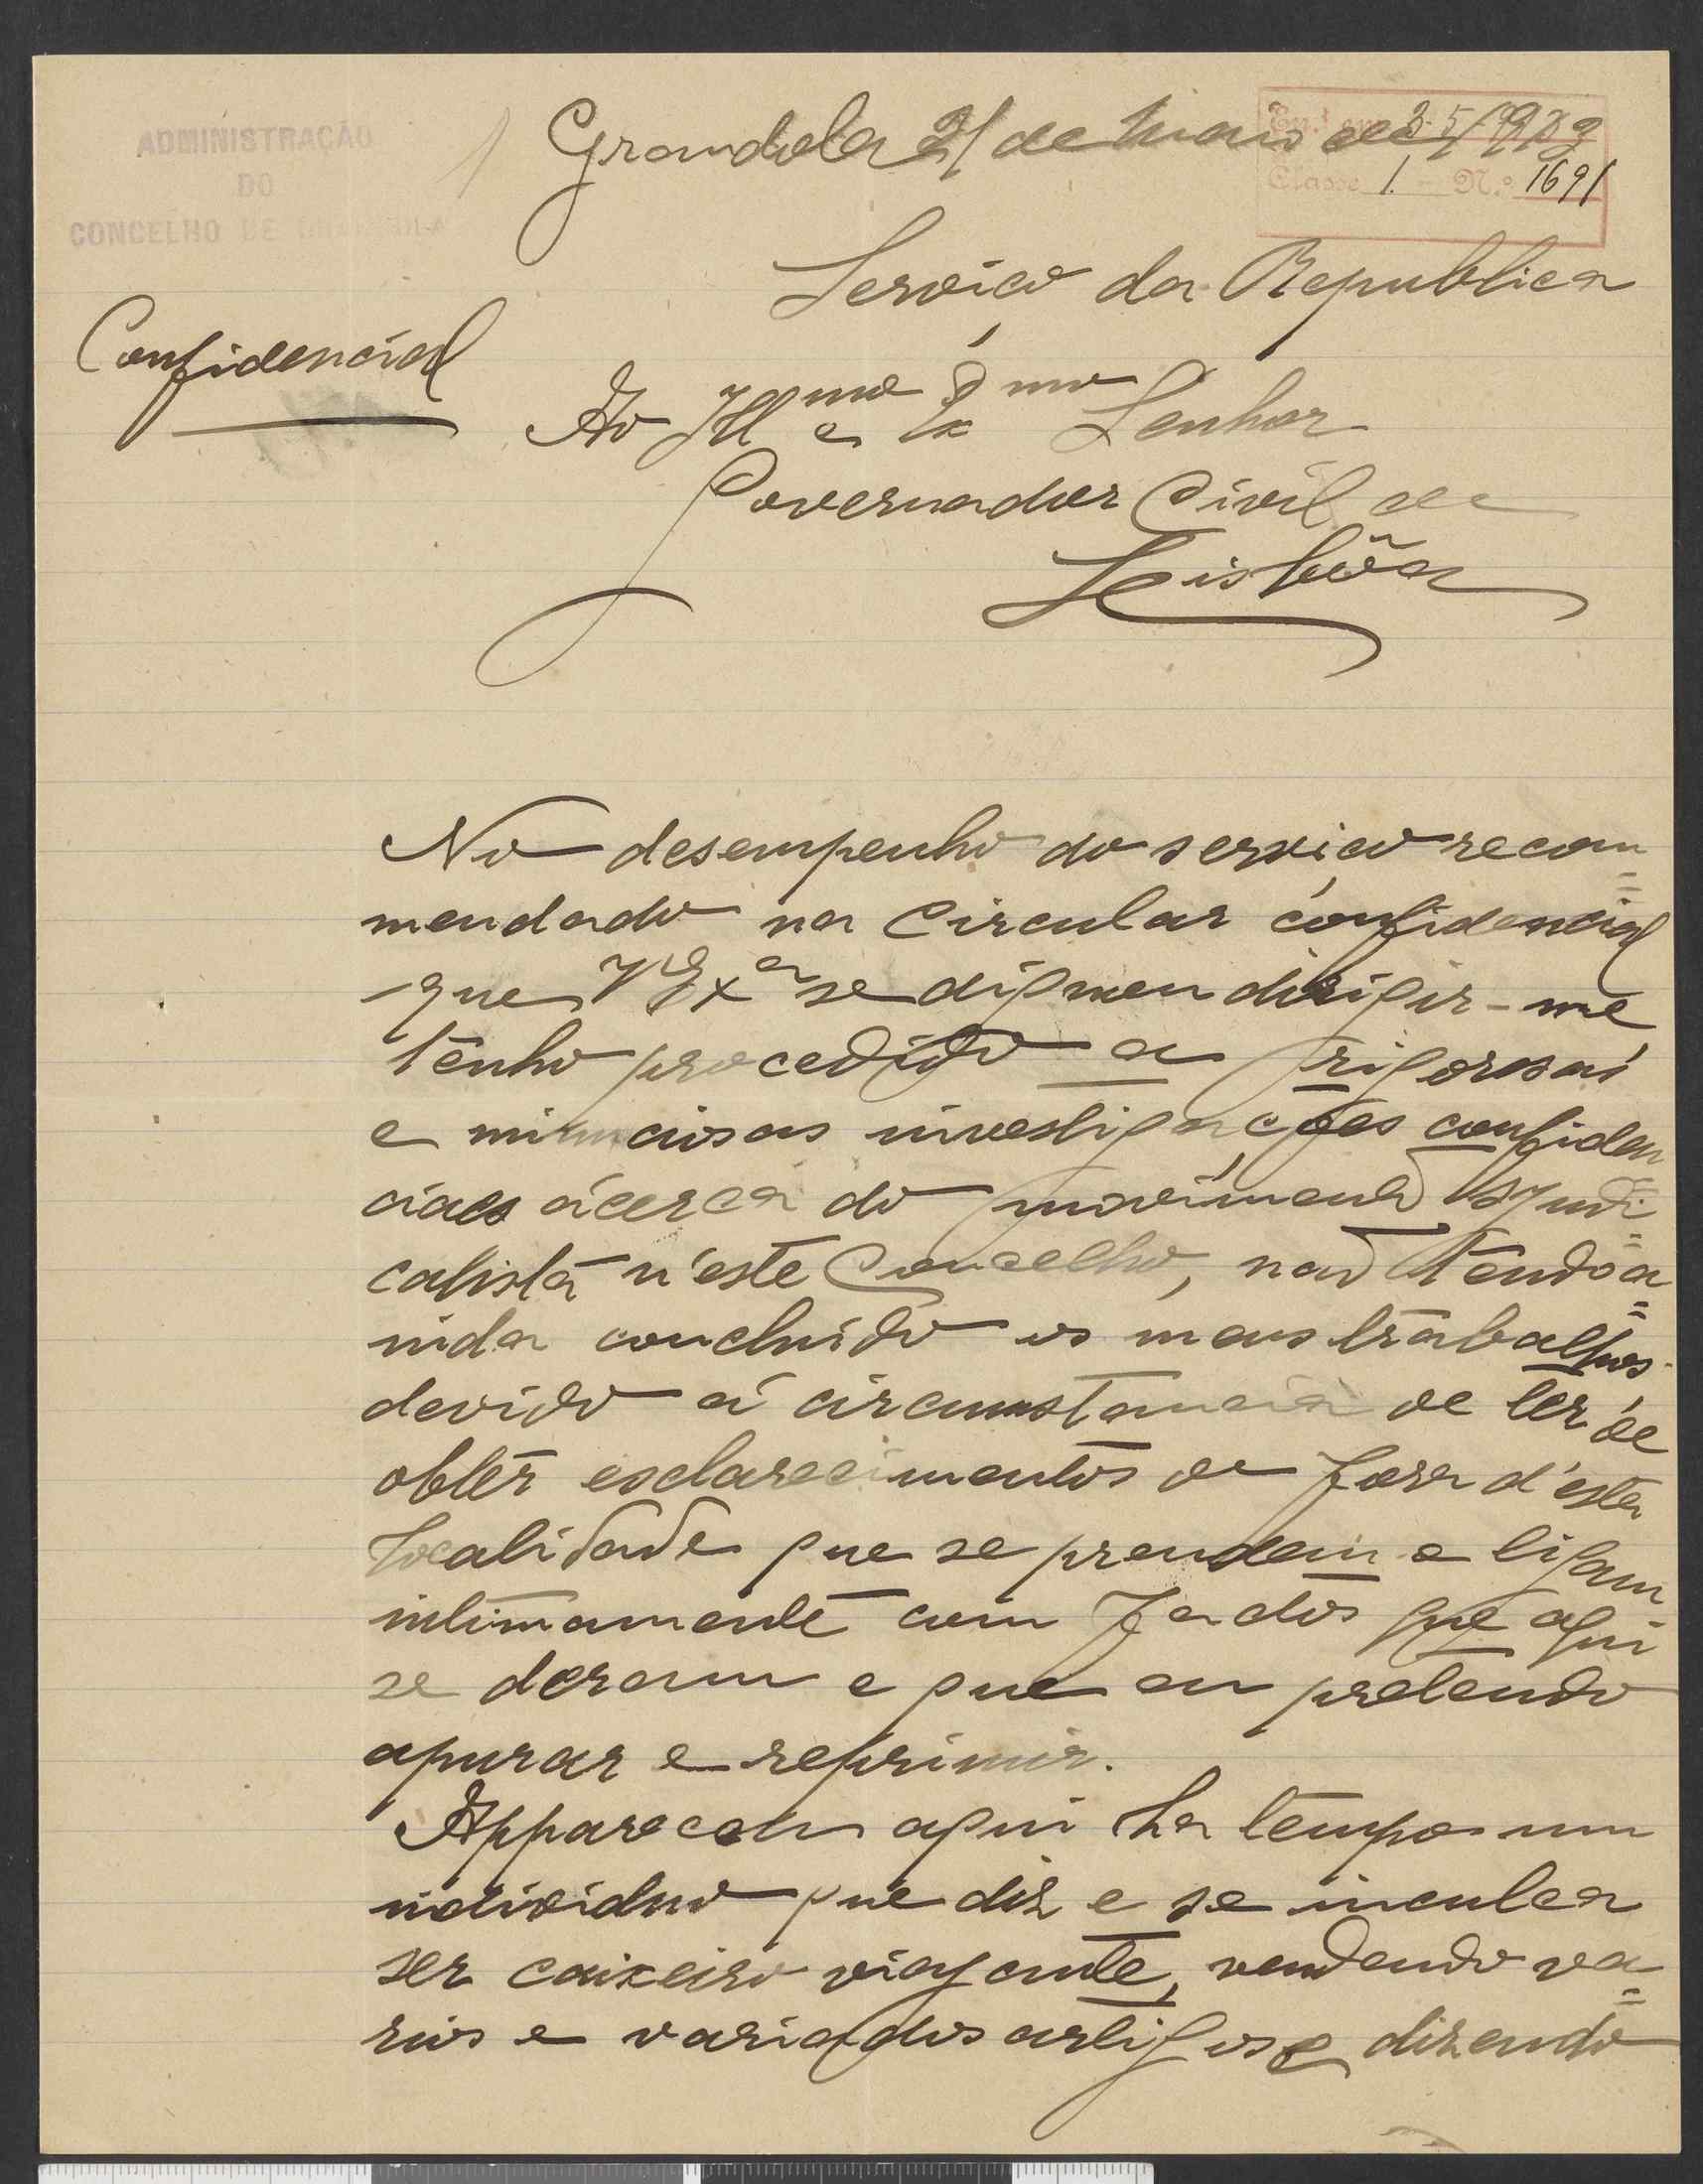 ADMINISTRAÇÃO
DO
CONCELHO DE GRANDOLA
Grandola 21 de Maio de
Classe 1. - N.º 1691
Serviço da Republica
Confidencial
Ao Illmo e Exmo Senhor
Governador Civil de
Lisbôa
No desempenho do serviço recom=
mendado na Circular confidencial
que V Exa se dignou dirigir-me
tenho procedido a rigorosas
e minuciosas investigações confiden
ciaes ácerca do movimento syndi=
calista n'este Concelho, não tendo a=
inda concluido os meus trabalhos
devido á circumstancia de ter de
obter esclarecimentos de fora d'esta
localidade que se prendem e ligam
intimamente com factos que aqui
se deram e que eu pretendo
apurar e reprimir.
Appareceu aqui ha tempo um
individuo que diz e se inculca
ser caixeiro viajante, vendendo va=
rios e variados artigos e dizendo